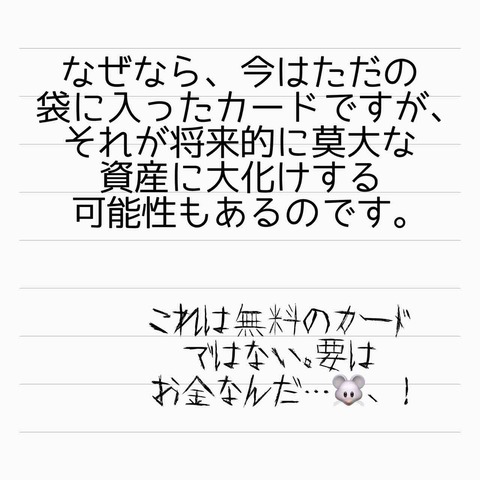 なぜなら、今はただの
袋に入ったカードですが、
それが将来的に莫大な
資産に大化けする
可能性もあるのです。
これは無料のカード
ではない。要は
お金なんだ…🐭、！